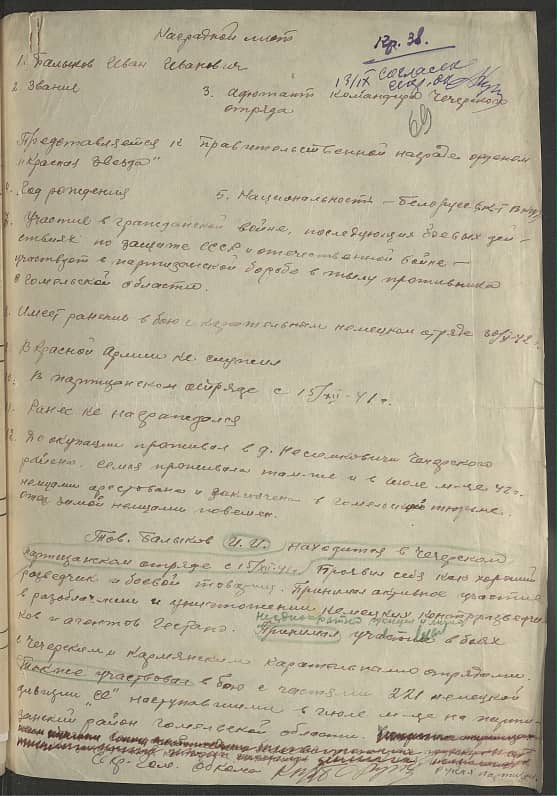 Наградной лист
Кр. Зв.
1. Балыков Иван Иванович
13/IX Согласен
2. Звание 3. адютант командира Чечерского
отряда
69
Представляется к правительственной награде орденом
"Красная Звезда"
Год рождения 5. Национальность – белорус
Участие в гражданской войне, последующих боевых дей-
ствиях по защите СССР и отечественной войне –
участвует в партизанской борьбе в тылу противника
в Гомельской области.
Имеет ранение в бою с карательным немецком отряде
В Красной Армии не служил
В партизанском отряде с 15/XII-41 г.
Ранее не награждался
До оккупации проживал в д. Чечерского
района. Семья проживала там-же и в июле м-це 42 г.
немцами арестована и заключена в гомельской тюрьме.
отец зимой немцами повешен.
Тов. Балыков И.И. находится в Чечерском
партизанском отряде с 15/XII-41 г. Проявил себя как хороший
разведчик и боевой товарищ. Принимал активное участие
в разоблачении и уничтожении немецких контрразведчи-
ков и агентов Гестапо. Принимал участие в боях
с Чечерским и Кормянским карательными отрядами.
Также участвовал в бою с частями 221 немецкой
дивизии "СС" наступавшими в июле м-це на парти-
занский район Гомельской области.
Секр. Гом. Обкома